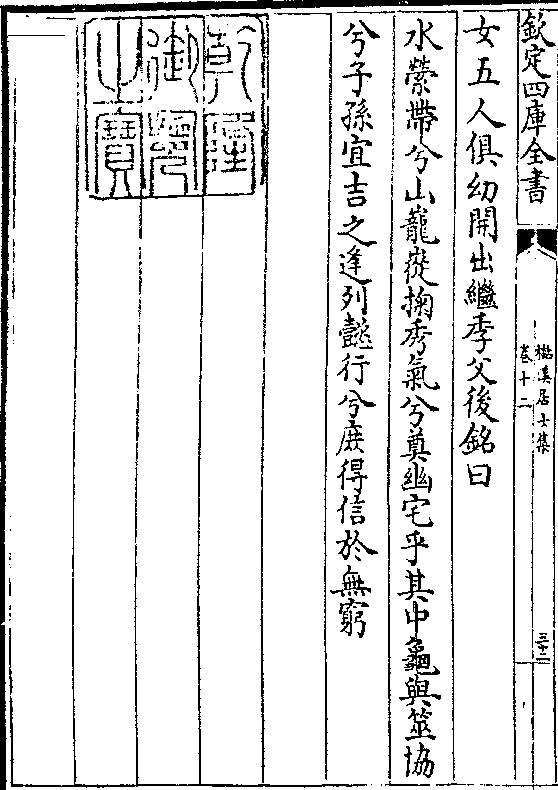 欽定四庫全書
樵溪居士集
卷十二
三十二
女五人俱幼開出繼季父後銘曰
水縈帶兮山巃嵸掬秀氣兮奠幽宅乎其中龜與筮協
兮子孫宜吉之逢列懿行兮庻得信於無窮
乾隆御覽之寶